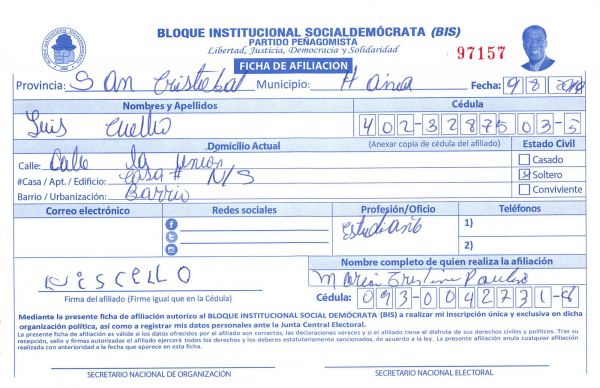 BLOQUE INSTITUCIONAL SOCIALDEMÓCRATA (BIS)
PARTIDO PEÑAGOMISTA
Libertad, Justicia, Democracia y Solidaridad
FICHA DE AFILIACION
97157
Provincia: San Cristobal Municipio: Haina Fecha: 9 8
Nombres y Apellidos
Cédula
Luis Cuello
402-3287503-5
Domicilio Actual
(Anexar copia de cédula del afiliado)
Estado Civil
Calle: Calle la union
Casado
#Casa / Apt. / Edificio: Casa # N/S
Soltero
Barrio / Urbanización: Barrio
Conviviente
Correo electrónico
Redes sociales
Profesión/Oficio
Teléfonos
Estudiante
1)
2)
Nombre completo de quien realiza la afiliación
Maria Cristina Paulino
Firma del afiliado (Firme igual que en la Cédula)
Cédula: 093-0042731-8
Mediante la presente ficha de afiliación autorizo al BLOQUE INSTITUCIONAL SOCIAL DEMÓCRATA (BIS) a realizar mi inscripción única y exclusiva en dicha
organización política, así como a registrar mis datos personales ante la Junta Central Electoral.
La presente ficha de afiliación es válida si los datos ofrecidos por el afiliado son correctos, las declaraciones veraces y si el afiliado tiene el disfrute de sus derechos civiles y políticos. Tras su
recepción, sello y firmas autorizadas el afiliado ejercerá todos los derechos y los deberes estatutariamente sancionados, de acuerdo a la ley. La presente afiliación anula cualquier afiliación
realizada con anterioridad a la fecha que aparece en esta ficha.
SECRETARIO NACIONAL DE ORGANIZACIÓN
SECRETARIO NACIONAL ELECTORAL